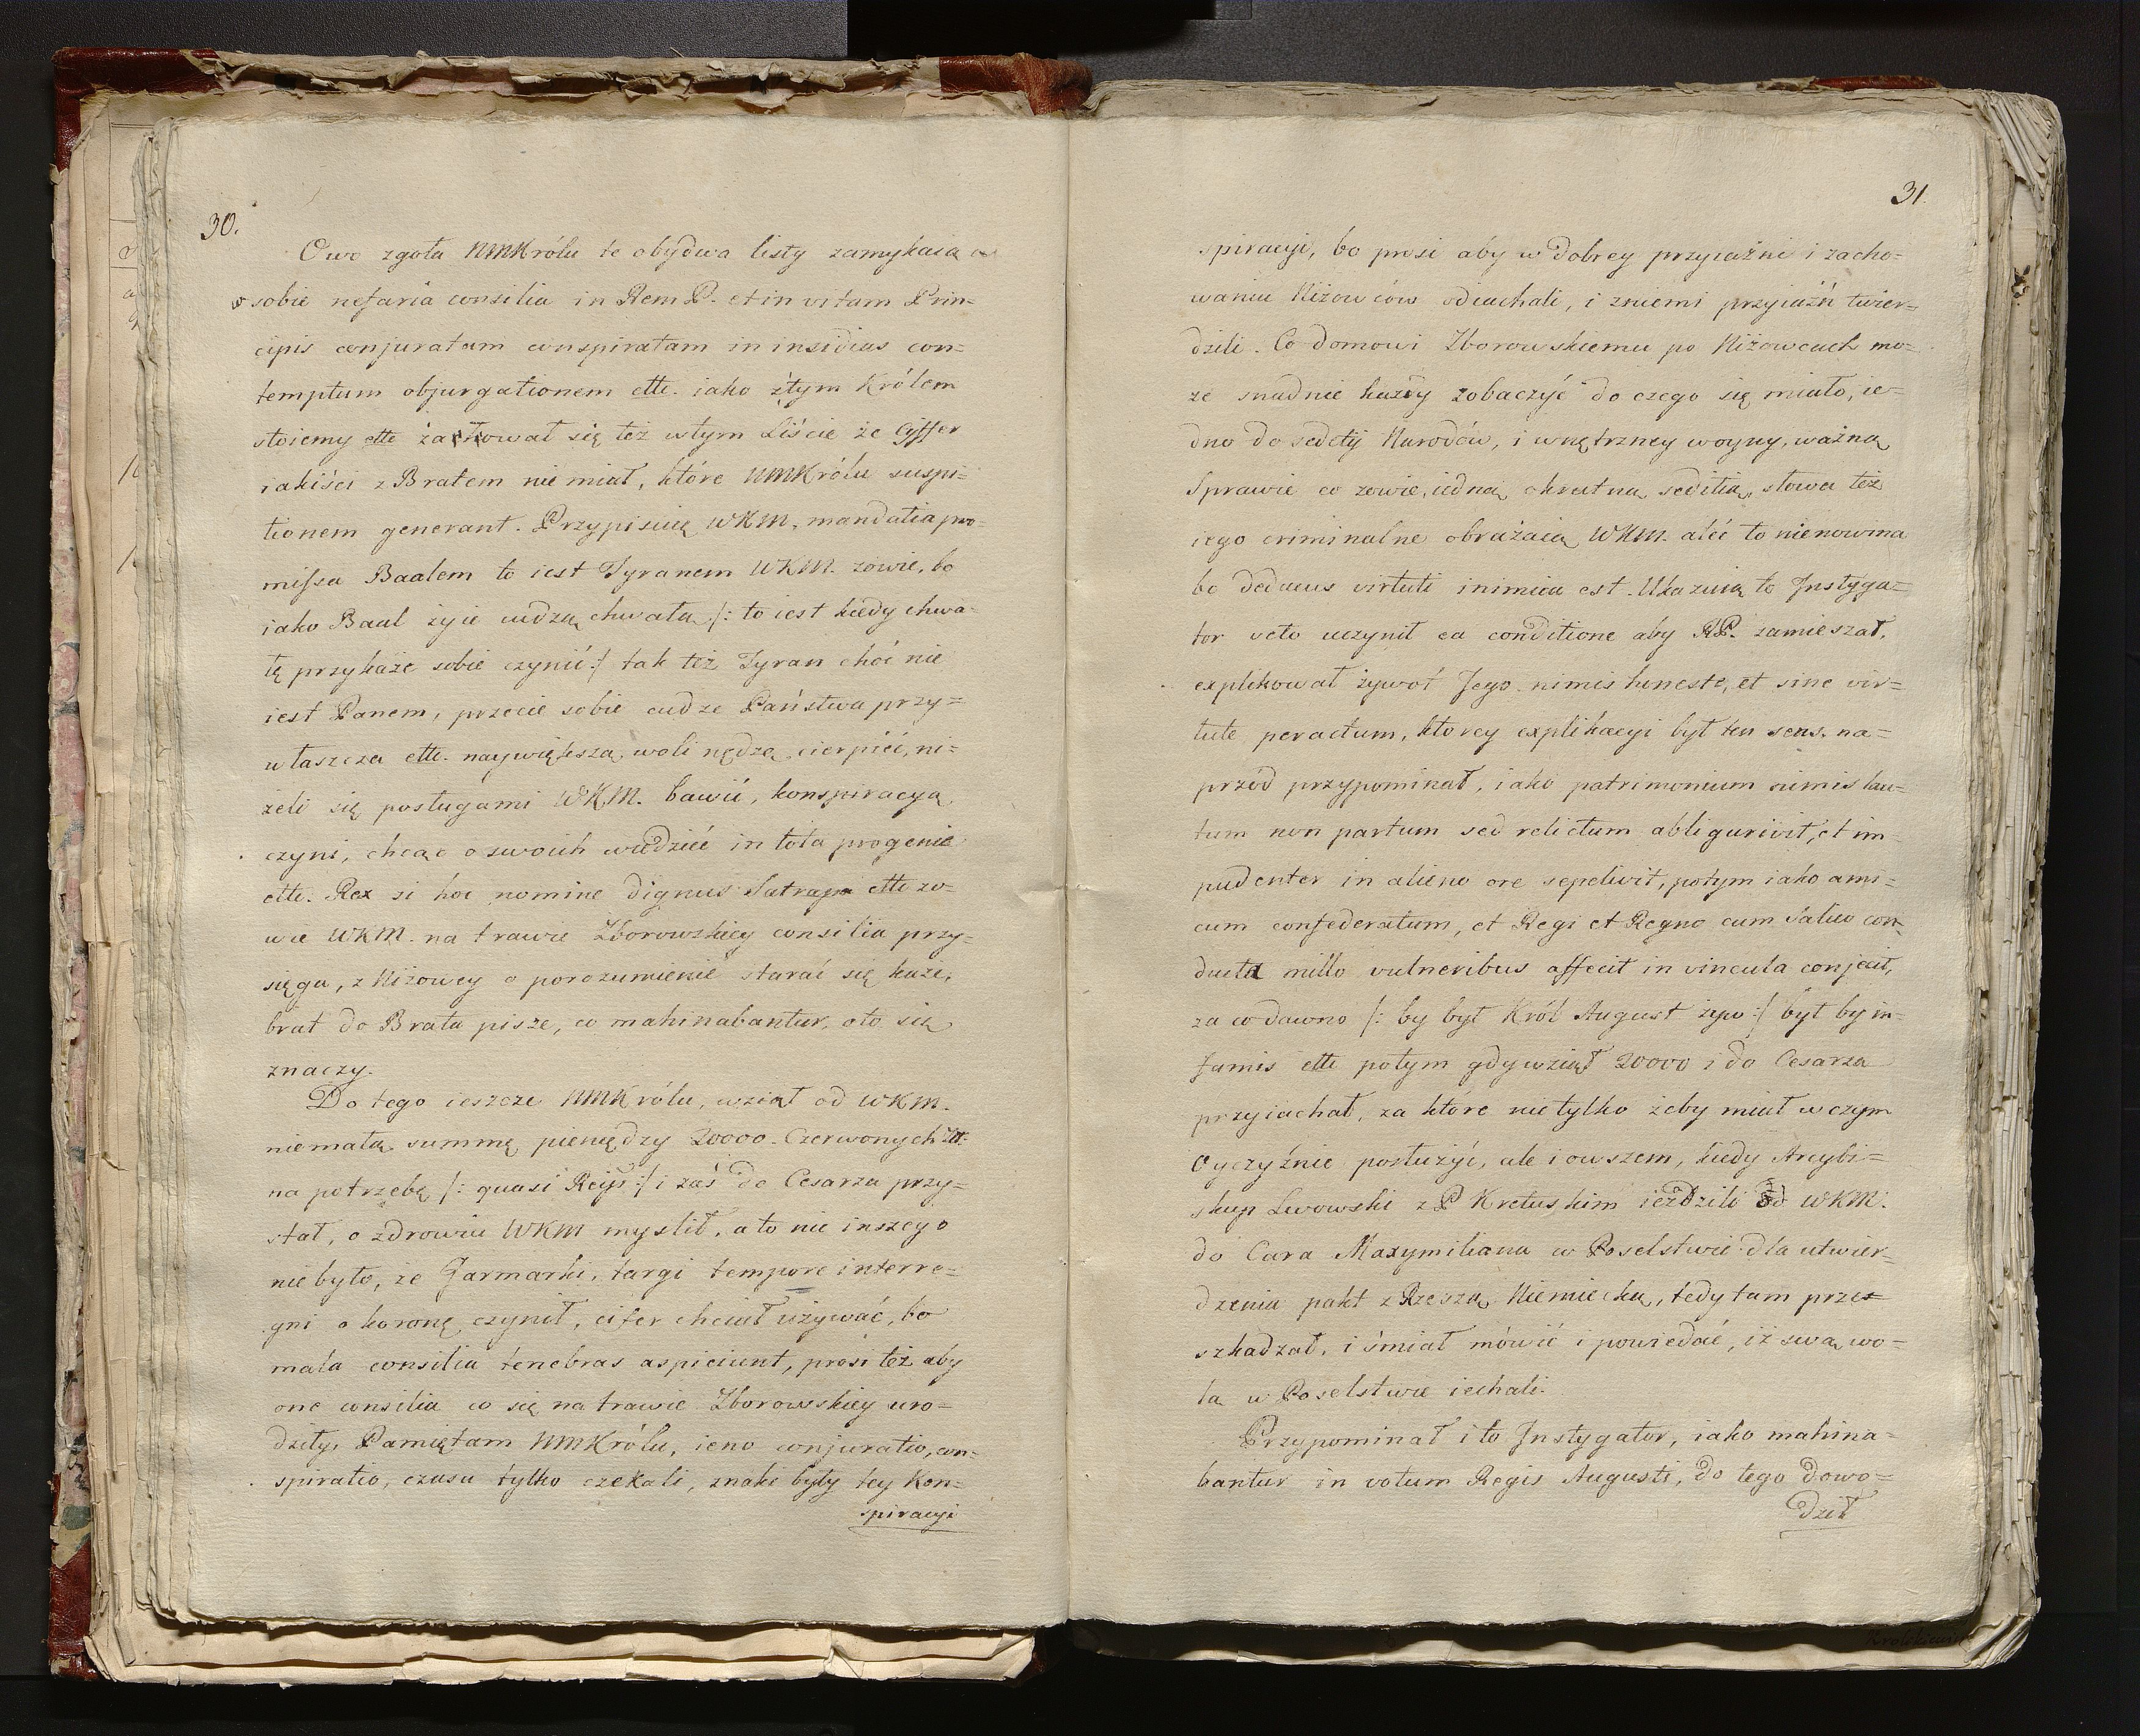 30.
Owo zgoła NMKrólu te obydwa listy zamykaią w
sobie nefaria consilia in Rem P. et in vitam Prin=
cipis conjuratam conspiratam in insidias con=
temptum objurgationem ette. iako złym Królem
stoiemy ette się też wtym Liście że Cyffer
iakiści z Bratem nie miał, które NMKrólu suspi=
tionem generant. Przypisuią WKM. mandatia pro=
missa Baalem to iest Tyranem WKM. zowie, bo
iako Baal żyie cudzą chwałą /: to iest kiedy chwa=
łę przykaże sobie czynić :/ tak też Tyran choć nie
iest Panem, przecie sobie cudze Państwa przy=
właszcza ette. naywiększą woli nędzę cierpieć, ni=
żeli się posługami WKM. bawić, konspiracyą
czyni, chcąc o swoich wiedzieć in tota progenie
ette. Rex si hoc nomine dignus Satrapa ette zo=
wie WKM. na trawie Zborowskiey consilia przy=
sięga, z Niżowcy o porozumienie starać się każe,
brat do Brata pisze, co mahinabantur, oto się
znaczy.
Do tego ieszcze NMKrólu, wziął od WKM.
niemałą summę pieniędzy 20000. Czerwonych Zł.
na potrzebę /: quasi Reip: :/ i zaś do Cesarza przy=
stał, o zdrowiu WKM myslił, a to nie inszego
nie było, że Jarmarki, targi tempore interre=
gni o koronę czynił, cifer chciał używać, bo
mala consilia tenebras aspiciunt, prosi też aby
one consilia co się na trawie Zborowskiey uro=
dziły, Pamiętam NMKrólu, ieno conjuratio, con=
spiratio, czasu tylko czekali, znaki były tey kon=
spiracyi
31.
spiracyi, bo prosi aby w dobrey przyiaźni i zacho=
waniu Niżowców odiachali, i zniemi przyiaźń twier=
dzili. Co domowi Zborowskiemu po Niżowcach mo=
że snadnie każdy zobaczyć do czego się miało, ie=
dno do sedetij Narodów, i wnętrzney woyny, ważną
Sprawie co zowie, iedną okrutną seditią, słowa też
iego criminalne obrażaią WKM. aleć to nienowina
bo dedecus virtuti inimica est. Ukazuią to Instyga=
tor veto uczynił ea conditione aby RP. zamieszał,
explikował żywot Jego nimis huneste, et sine vir=
tute peractum, ktorey explikacyi był ten sens. na=
przód przypominał, iako patrimonium nimis lau=
tum non partum sed relictum abligurivit, et im=
pudenter in alieno ore sepelivit, potym iako ami=
cum confederatum, et Regi et Regno cum salvo con=
ductu millo vulneribus affecit in vincula conjecit,
za co dawno /: by był Król August żyw :/ był by in=
famis ette potym gdy wziął 20000 i do Cesarza
przyiachał, za które nie tylko żeby miał w czym
Oyczyźnie posłużyć, ale i owszem, kiedy Arcybi=
skup Lwowski z P Kretuskim ieździli od WKM.
do Cara Maxymiliana w Poselstwie dla utwier=
dzenia pakt z Rzeszą Niemiecką, tedy tam prze=
szkadzał, i śmiał mówić i powiedać, iż swą wo=
lą w Poselstwie iechali.
Przypominał i to Instygator, iako mahina=
bantur in votum Regis Augusti, do tego dowo=
dził